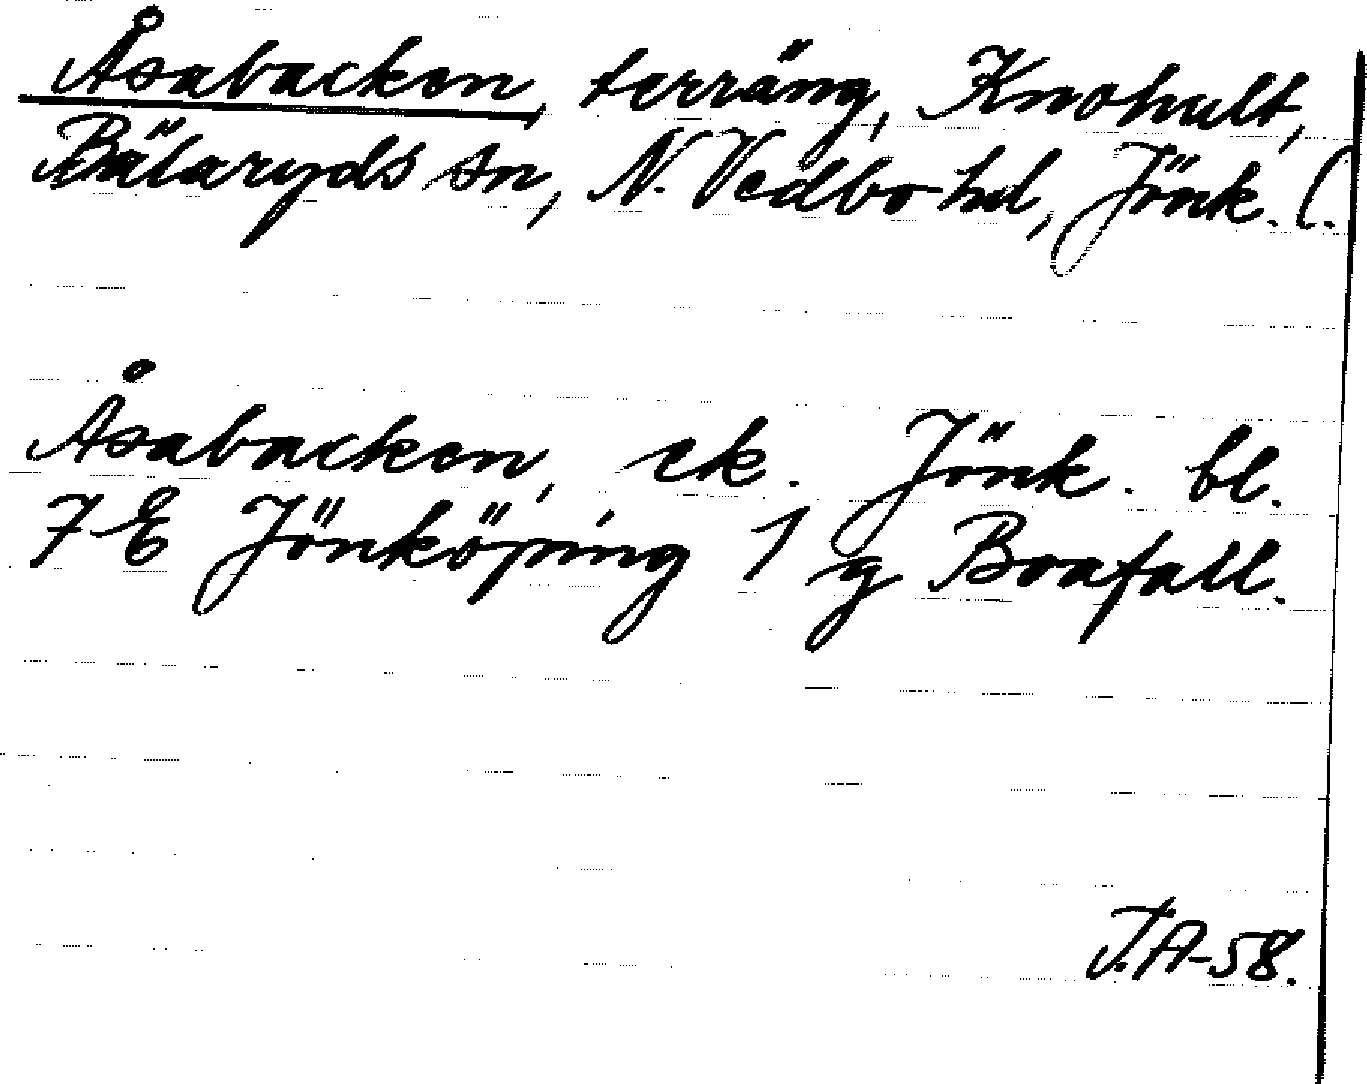 Åsabacken, terräng, Knohult,
Bälaryds sn, N. Vedbo hd, Jönk. l.
Åsabacken, ek. Jönk. bl.
7 E Jönköping 1 g Boafall.
J.A-58.